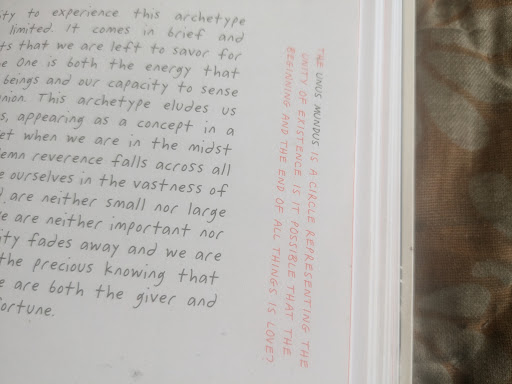 ity to experience this archetype
limited. It comes in brief and
ts that we are left to savor for
e One is both the energy that
beings and our capacity to sense
nion. This archetype eludes us
s, appearing as a concept in a
et when we are in the midst
emn reverence falls across all
e ourselves in the vastness of
d are neither small nor large
e are neither important nor
ity fades away and we are
the precious knowing that
e are both the giver and
ortune.
THE UNUS MUNDUS IS A CIRCLE REPRESENTING THE
UNITY OF EXISTENCE IS IT POSSIBLE THAT THE
BEGINNING AND THE END OF ALL THINGS IS LOVE?